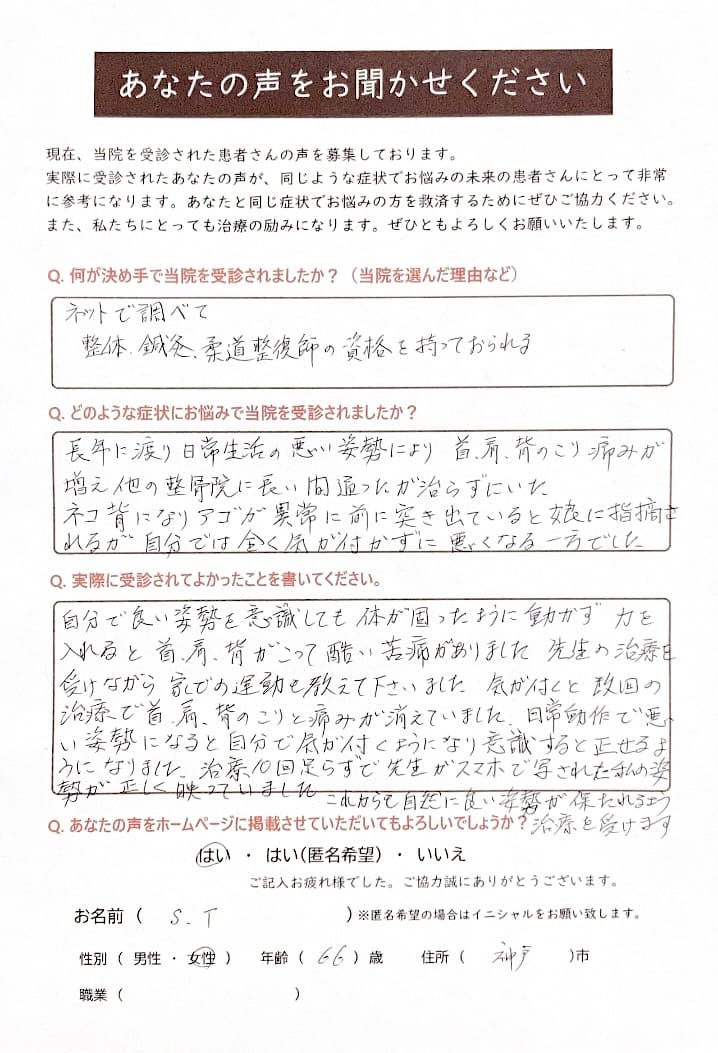 あなたの声をお聞かせください
現在、当院を受診された患者さんの声を募集しております。
実際に受診されたあなたの声が、同じような症状でお悩みの未来の患者さんにとって非常
に参考になります。あなたと同じ症状でお悩みの方を救済するためにぜひご協力ください。
また、私たちにとっても治療の励みになります。ぜひともよろしくお願いいたします。
Q. 何が決め手で当院を受診されましたか？（当院を選んだ理由など）
ネットで調べて
整体、鍼灸、柔道整復師の資格を持っておられる
Q. どのような症状にお悩みで当院を受診されましたか？
長年に渡り日常生活の悪い姿勢により 首、肩、背のこり痛みが
増え他の整骨院に長い間通ったが治らずにいた
ネコ背になりアゴが異常に前に突き出ていると娘に指摘さ
れるが自分では全く気が付かずに悪くなる一方でした
Q. 実際に受診されてよかったことを書いてください。
自分で良い姿勢を意識しても体が固ったように動かず 力を
入れると首、肩、背がこって酷い苦痛がありました 先生の治療を
受けながら家での運動も教えて下さいました 気が付くと数回の
治療で首、肩、背のこりと痛みが消えていました、日常動作で悪
い姿勢になると自分で気が付くようになり意識すると正せるよ
うになりました、治療10回足らずで先生がスマホで写された私の姿
勢が正しく映っていました これからも自然に良い姿勢が保たれるよう
治療を受けます
Q. あなたの声をホームページに掲載させていただいてもよろしいでしょうか？
はい ・ はい(匿名希望) ・ いいえ
ご記入お疲れ様でした。ご協力誠にありがとうございます。
お名前（ S.T ）※匿名希望の場合はイニシャルをお願い致します。
性別（ 男性 ・ 女性 ） 年齢（ 66 ）歳 住所（ 神戸 ）市
職業（ ）